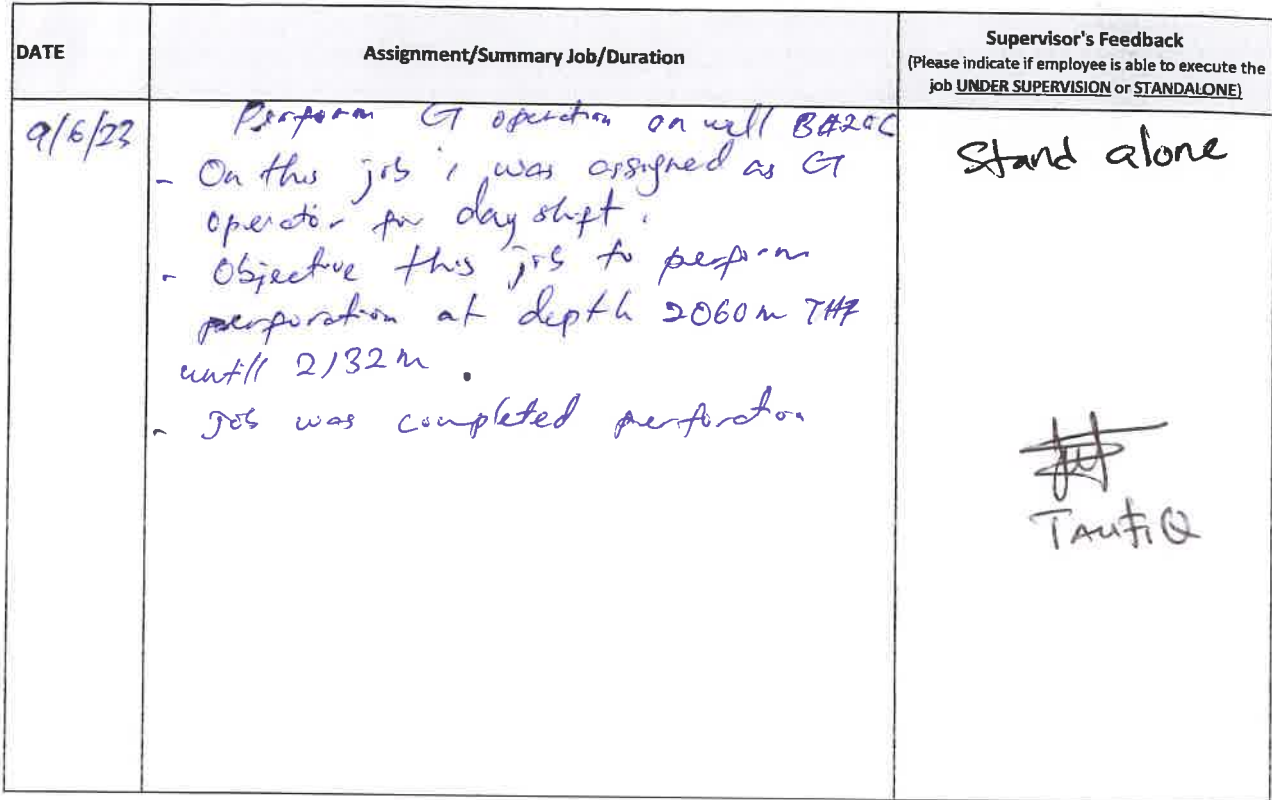 DATE
Assignment/Summary Job/Duration
Supervisor's Feedback
(Please indicate if employee is able to execute the
job UNDER SUPERVISION or STANDALONE)
9/6/23
Perform CT operation on well
- On this job i was assigned as CT
operator for day shift.
- Objective this job to perform
perforation at depth 2060m
untill 2132m.
- Job was completed perforation
Stand alone
TAUFIQ